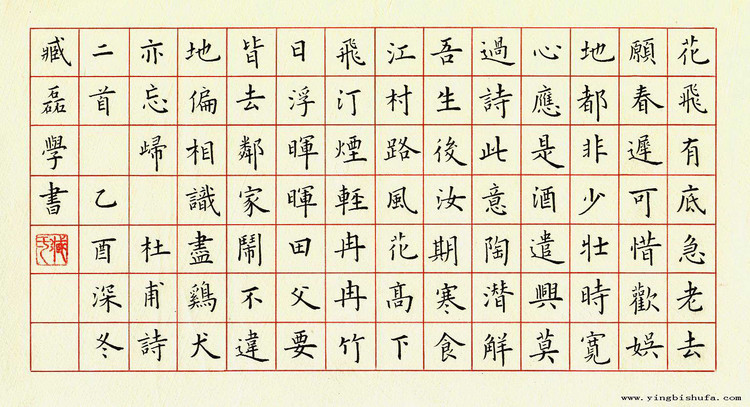 花飛有底急老去
願春遲可惜歡娛
地都非少壯時寬
心應是酒遣興莫
過詩此意陶潛解
吾生後汝期寒食
江村路風花高下
飛汀煙輕冉冉竹
日浮暉暉田父要
皆去鄰家鬧不違
地偏相識盡鷄犬
亦忘歸 杜甫詩
二首 乙酉深冬
臧磊學書
www.yingbishufa.com